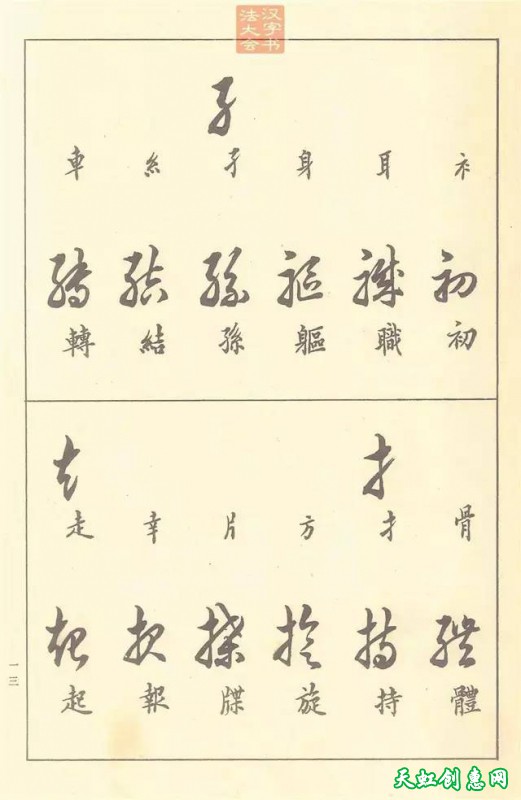 汉字书法大会
子
衤 耳 身 子 糹 車
初 職 軀 孫 結 轉
初 職 軀 孫 結 轉
扌 走
骨 扌 方 片 幸 走
體 持 旋 牒 報 起
體 持 旋 牒 報 起
一三
天虹创惠网